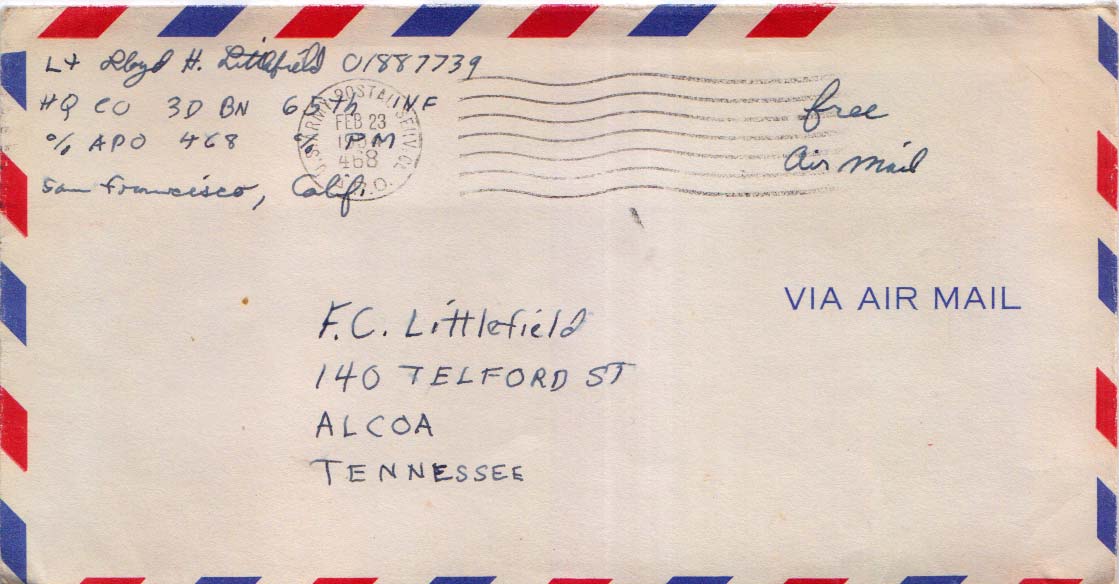 Lt Lloyd H. Littlefield 01887739
HQ CO 3D BN 65th INF
% APO 468
San Francisco, Calif.
ARMY POSTAL SERVICE
FEB 23
PM
468
A.P.O.
free
Air Mail
VIA AIR MAIL
F.C. Littlefield
140 TELFORD ST
ALCOA
TENNESSEE